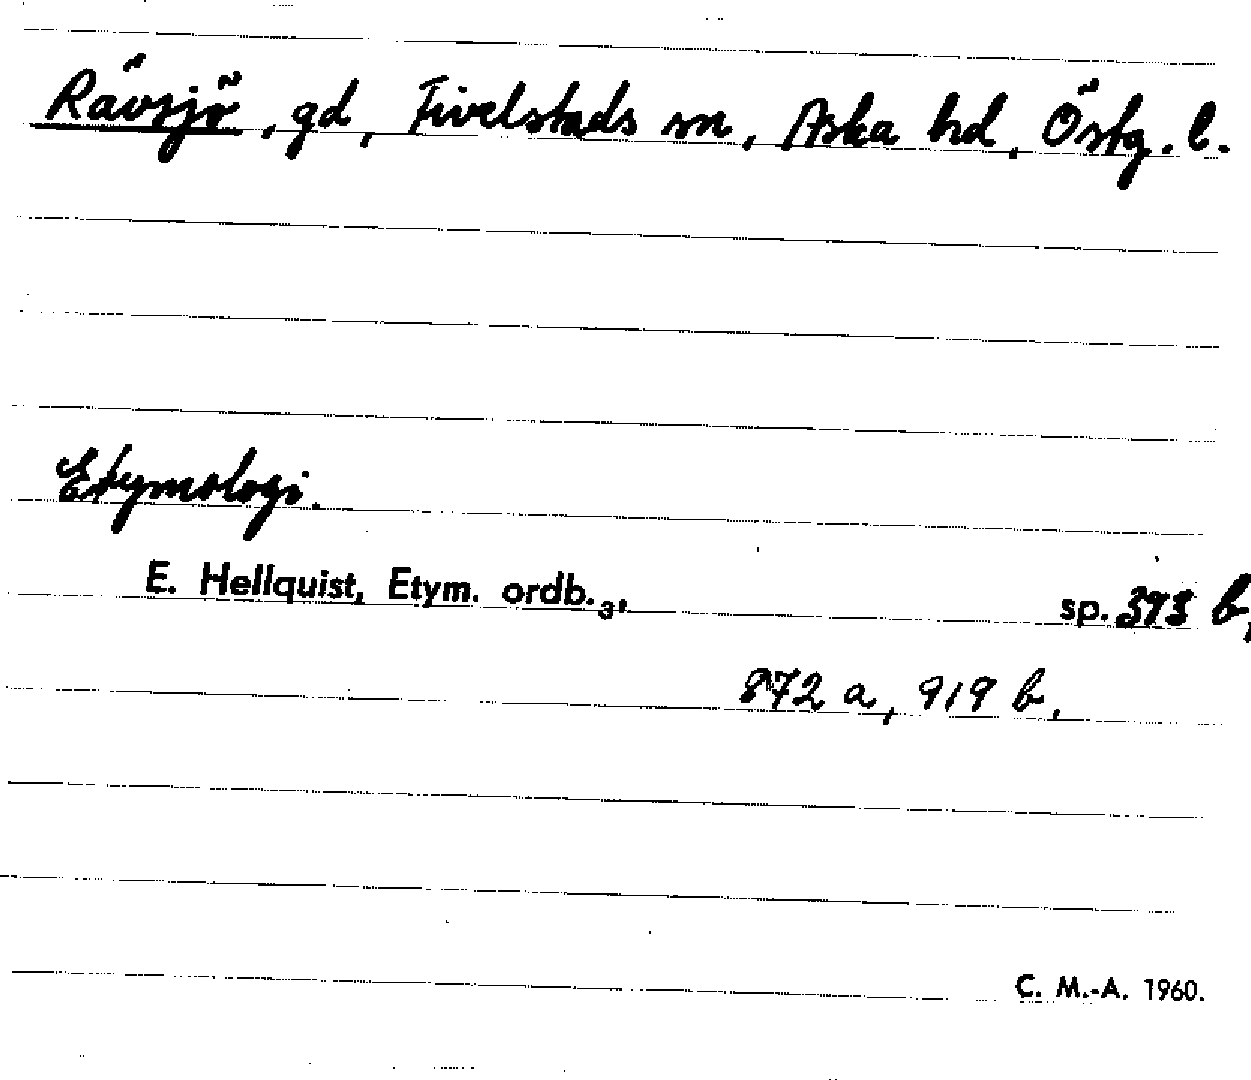 Rävsjö, gd, Fivelstads sn, Aska hd, Östg. l.
Etymologi.
E. Hellquist, Etym. ordb.3, sp. 393 b,
872 a, 919 b.
C. M.-A. 1960.